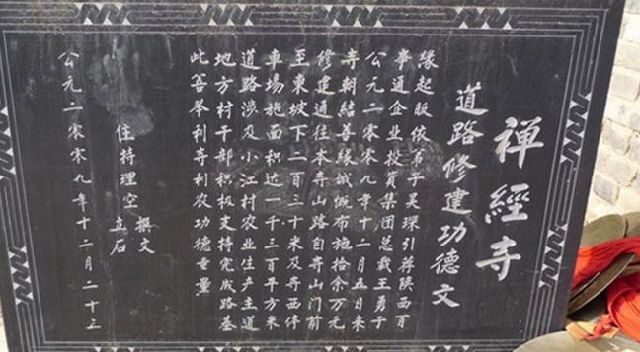 禪經寺
道路修建功德文
缘起皈依弟子吴琛引荐陕西百
事通企业投資集团总裁王勇于
公元二〇〇九年十二月五日来
寺朝結善缘誠慨布施拾余万元
修建通往本寺山路自寺山门前
至東坡下二百三十米及寺西停
車場施面积近一千三百平方米
道路涉及小江村农业生产主道
地方村干部积极支持完成路基
此善举利寺利农功德重量
住持理空 撰文
立石
公元二〇〇九年十二月二十三